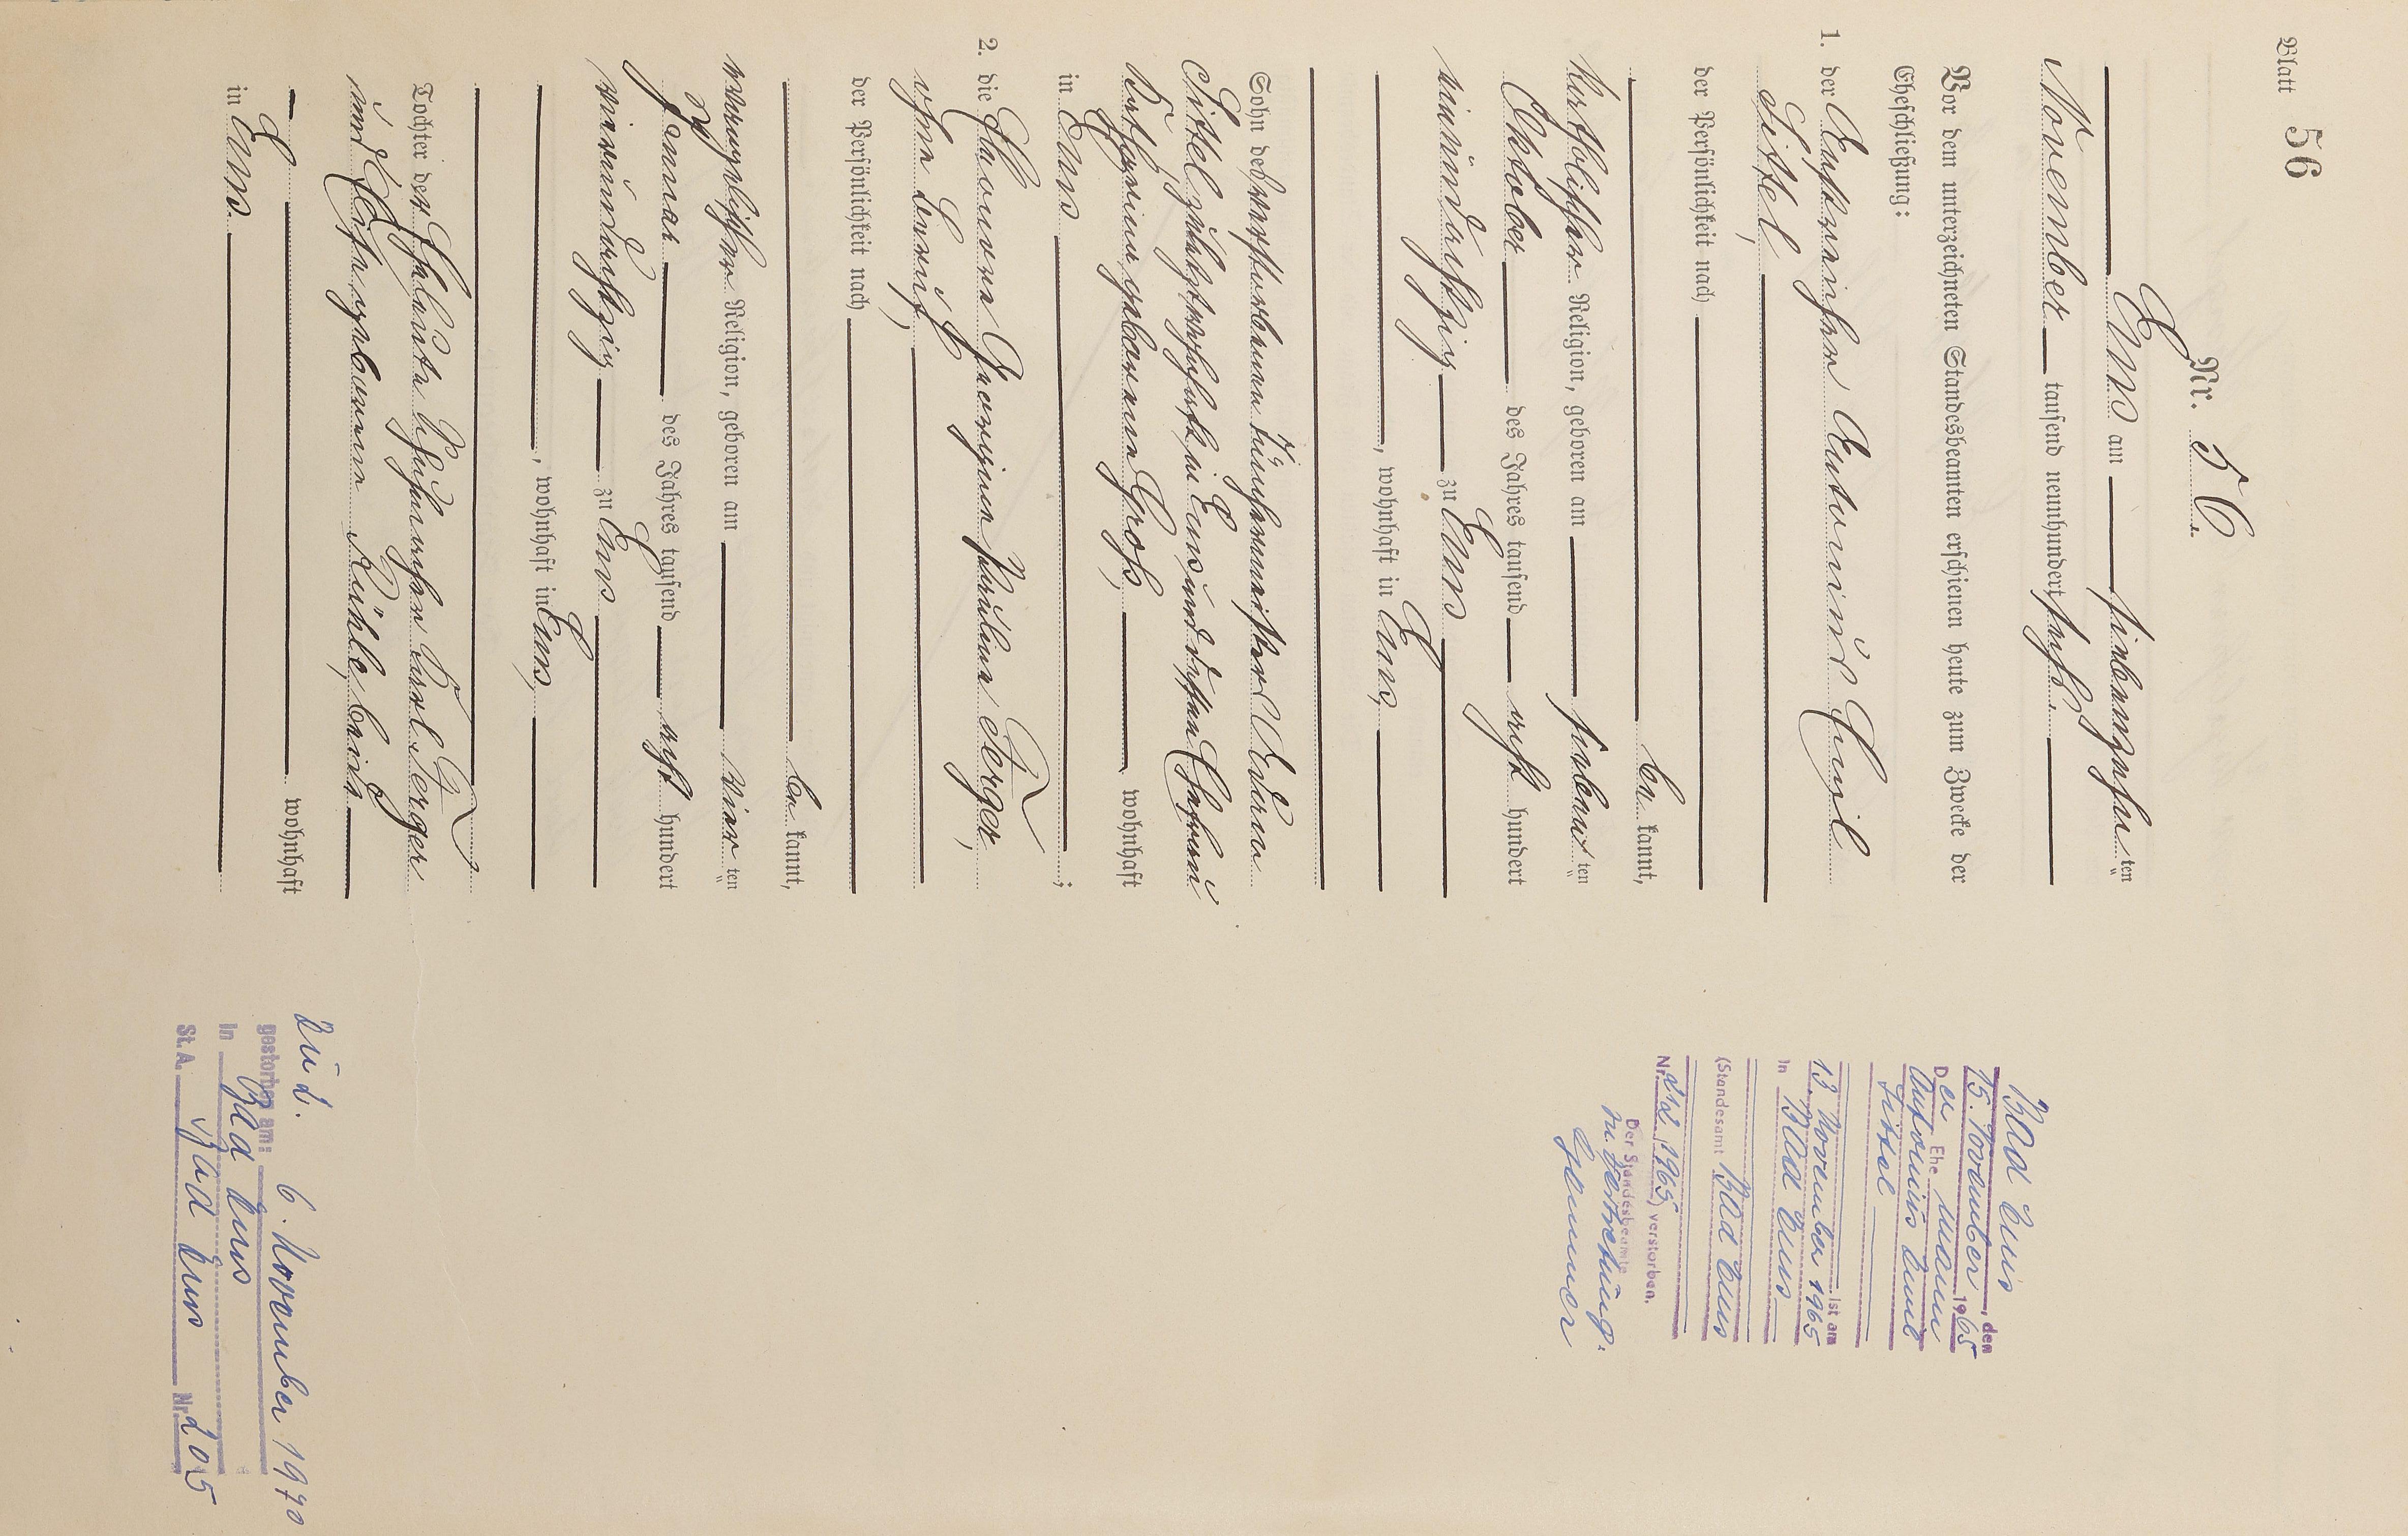 Blatt 56
Nr. 56.
Ems am siebenzehnten
November tausend neunhundert sechs.
Vor dem unterzeichneten Standesbeamten erschienen heute zum Zwecke der
Eheschließung:
1. der Anstreicher Antonius Emil
Sittel,
der Persönlichkeit nach
bekannt,
katholischer Religion, geboren am siebenten
Oktober des Jahres tausend acht hundert
neunundachtzig zu Ems
, wohnhaft in Ems,
Sohn des verstorbenen Adam
Sittel zuletzt wohnhaft in Ems und dessen Ehefrau
geborene Groß, wohnhaft
in Ems ;
2. die Johanna Georgine Pauline Ferger,
ohne Beruf,
der Persönlichkeit nach
bekannt,
evangelischer Religion, geboren am vierten
Januar des Jahres tausend acht hundert
vierundachtzig zu Ems
, wohnhaft in Ems,
Tochter der Eheleute Karl Ferger
und Elise geborenen Kühle, beide
wohnhaft
in Ems.
Bad Ems, den
15. November 1965
Der Ehemann
Antonius Emil
Sittel
ist am
13. November 1965
in Bad Ems
(Standesamt Bad Ems
Nr. 212/1965) verstorben.
Der Standesbeamte
In Vertretung.
6. November 1970
gestorben am:
in Bad Ems
St.A. Bad Ems Nr. 205